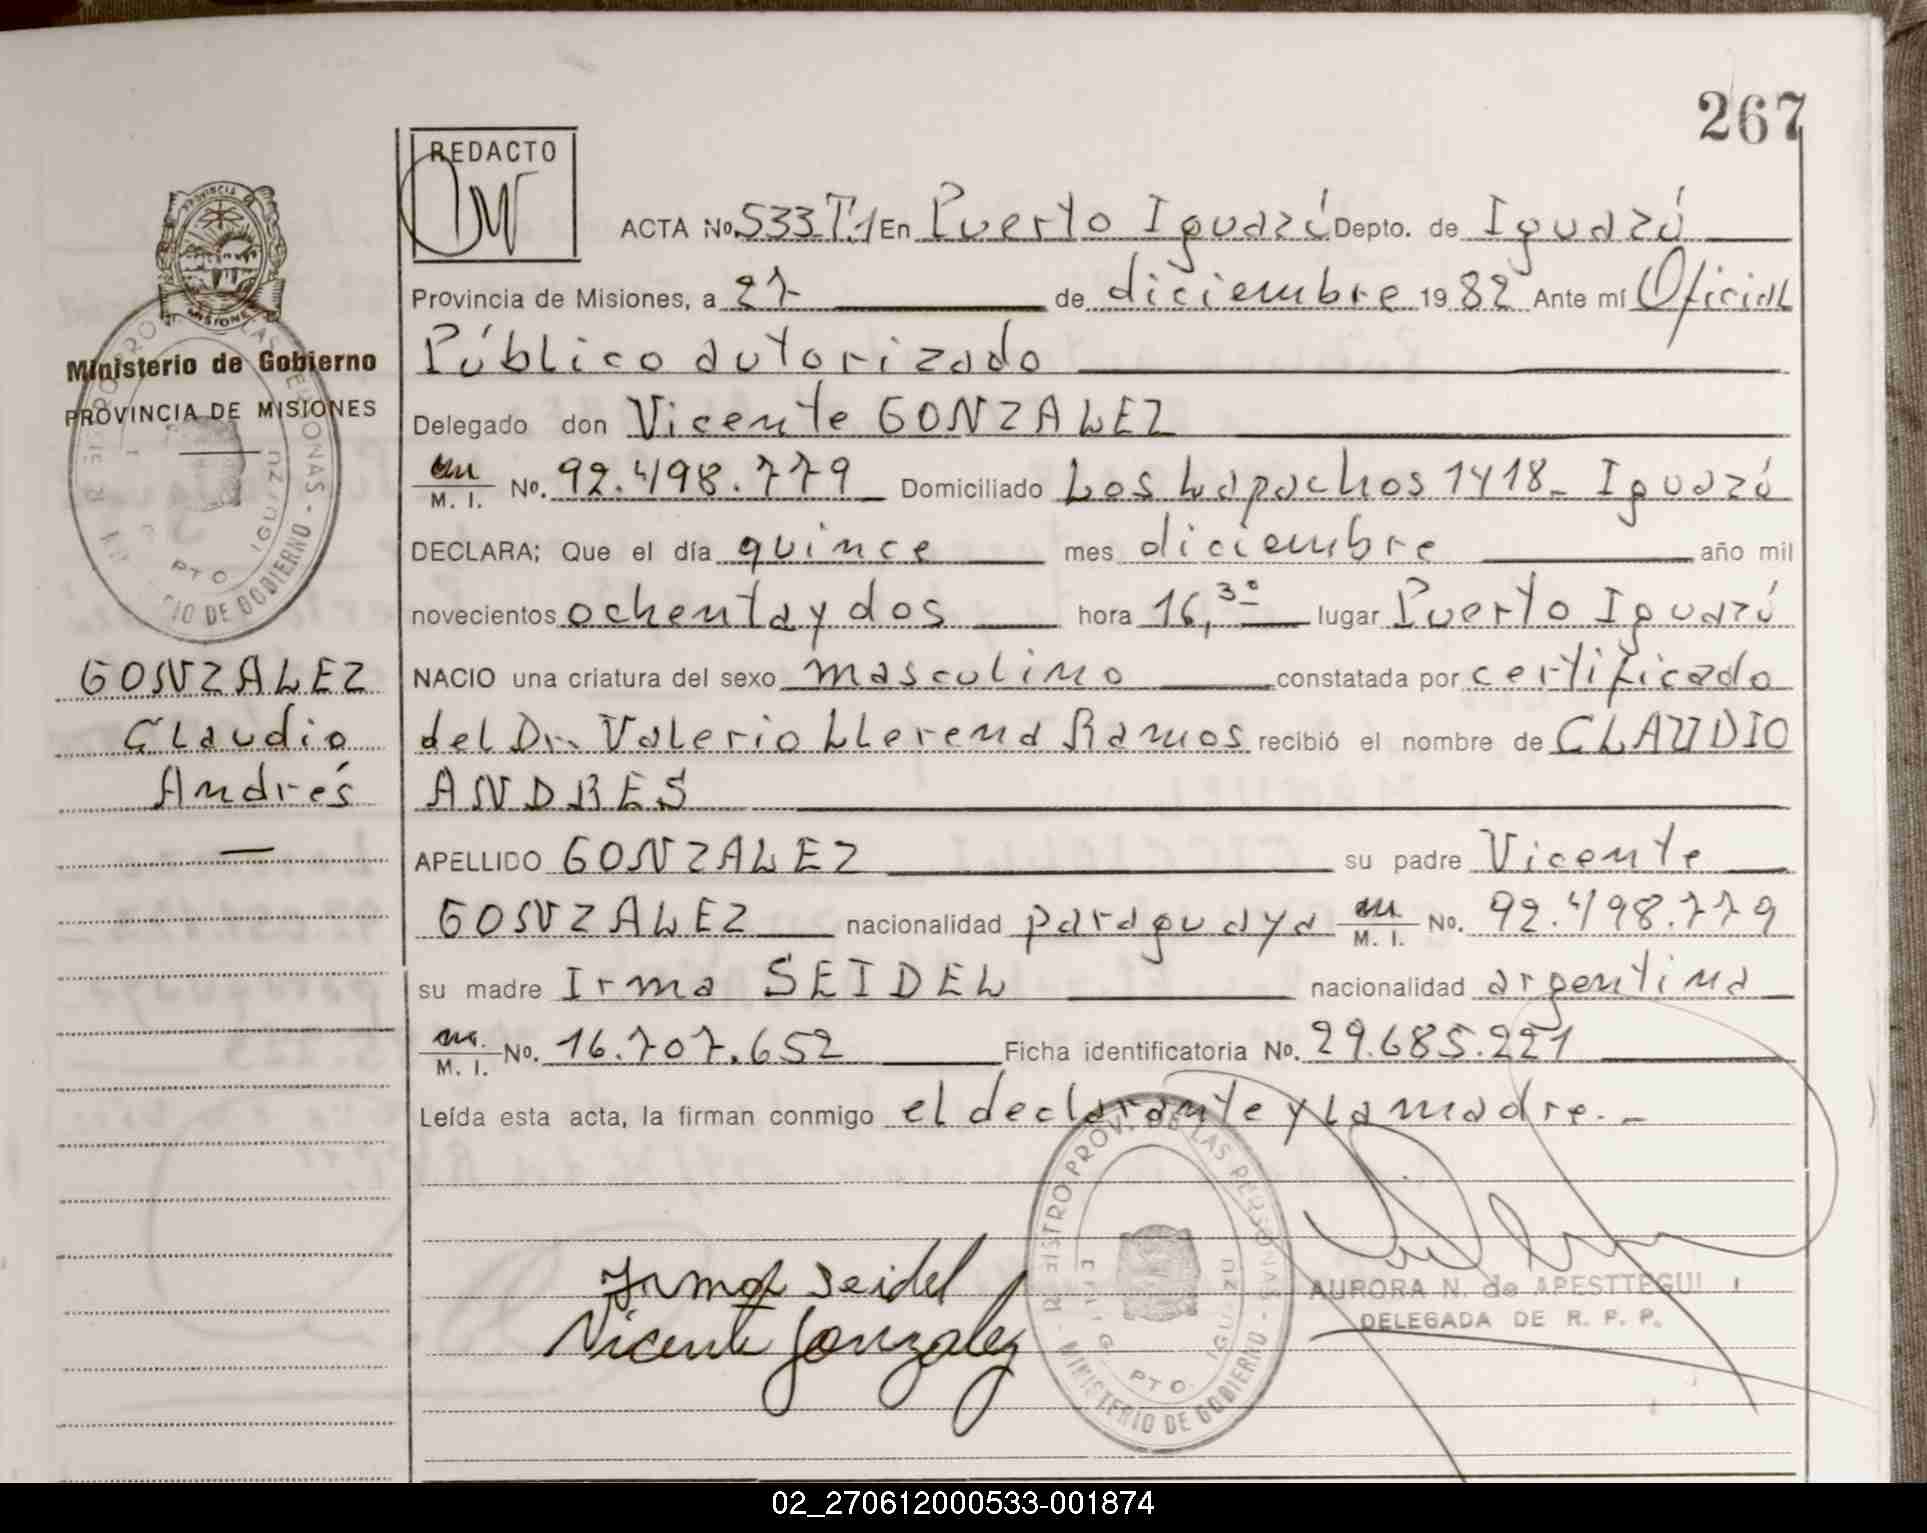 267
REDACTO
PROVINCIA
MISIONES
Ministerio de Gobierno
PROVINCIA DE MISIONES
ACTA No. 533 T.1 En Puerto Iguazú Depto. de Iguazú
Provincia de Misiones, a 27 de diciembre 1982 Ante mí Oficial
Público autorizado
Delegado don Vicente GONZALEZ
M. I. No. 92.498.779 Domiciliado Los Lapachos 1418 - Iguazú
DECLARA; Que el día quince mes diciembre año mil
novecientos ochenta y dos hora 16,30 lugar Puerto Iguazú
GONZALEZ
Claudio
Andrés
NACIO una criatura del sexo masculino constatada por certificado
del Dr. Valerio Llerena Ramos recibió el nombre de CLAUDIO
ANDRES
APELLIDO GONZALEZ su padre Vicente
GONZALEZ nacionalidad paraguaya M. I. No. 92.498.779
su madre Irma SEIDEL nacionalidad argentina
M. I. No. 16.707.652 Ficha identificatoria No. 29.685.221
Leída esta acta, la firman conmigo el declarante y la madre.-
Irma Seidel
Vicente Gonzalez
PTO. IGUAZU
MINISTERIO DE GOBIERNO
AURORA N. de APESTTEGUI
DELEGADA DE R. P. P.
02_270612000533-001874